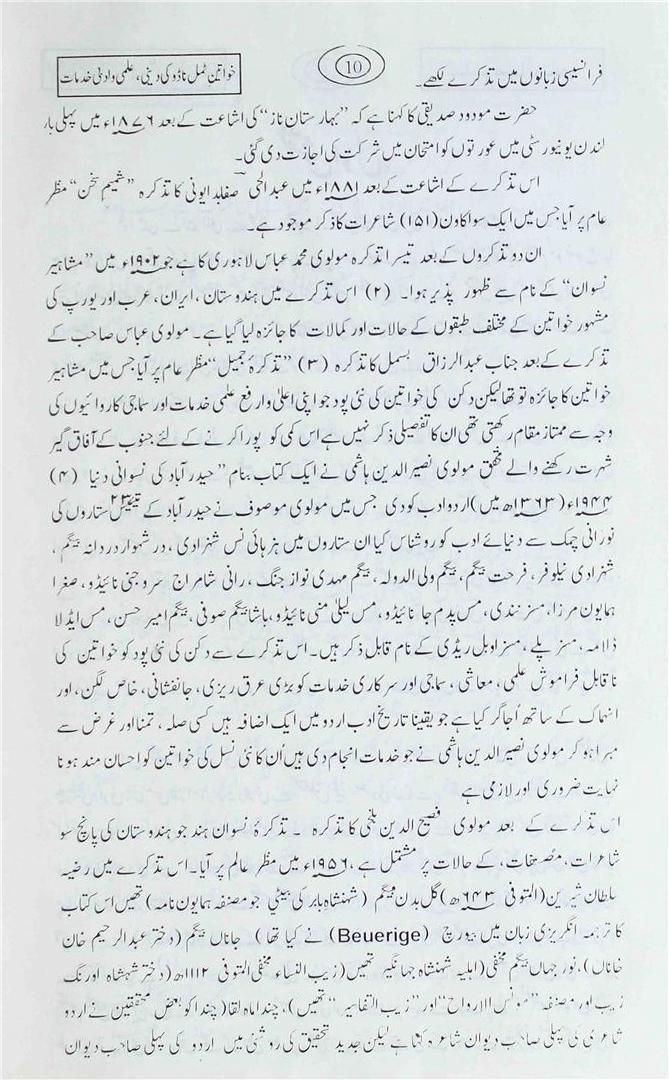 خواتین ٹمل ناڈو کی دینی، علمی و ادبی خدمات
10
فرانسیسی زبانوں میں تذکرے لکھے۔
حضرت مودود صدیقی کا کہنا ہے کہ ”بہارستان ناز“ کی اشاعت کے بعد ۱۸۷۶ء میں پہلی بار
لندن یونیورسٹی میں عورتوں کو امتحان میں شرکت کی اجازت دی گئی۔
اس تذکرے کے اشاعت کے بعد ۱۸۸۱ء میں عبدالحی صفا بدایونی کا تذکرہ ”شمیم سخن“ منظر
عام پر آیا جس میں ایک سو اکاون (۱۵۱) شاعرات کا ذکر موجود ہے۔
ان دو تذکروں کے بعد تیسرا تذکرہ مولوی محمد عباس لاہوری کا ہے جو ۱۹۰۲ء میں ”مشاہیر
نسواں“ کے نام سے ظہور پذیر ہوا۔ (۲) اس تذکرے میں ہندوستان، ایران، عرب اور یورپ کی
مشہور خواتین کے مختلف طبقوں کے حالات اور کمالات کا جائزہ لیا گیا ہے۔ مولوی عباس صاحب کے
تذکرے کے بعد جناب عبدالرزاق بسمل کا تذکرہ (۳) ”تذکرۂ جمیل“ منظر عام پر آیا جس میں مشاہیر
خواتین کا جائزہ تو تھا لیکن دکن کی خواتین کی نئی پود جو اپنی اعلیٰ و ارفع علمی خدمات اور سماجی کاروائیوں کی
وجہ سے ممتاز مقام رکھتی تھی ان کا تفصیلی ذکر نہیں ہے اس کمی کو پورا کرنے کے لئے جنوب کے آفاق گیر
شہرت رکھنے والے محقق مولوی نصیرالدین ہاشمی نے ایک کتاب بنام ”حیدرآباد کی نسوانی دنیا (۴)
۱۹۴۴ء (۱۳۶۳ھ میں) اردو ادب کو دی جس میں مولوی موصوف نے حیدرآباد کے تیئیس ۲۳ ستاروں کی
نورانی چمک سے دنیائے ادب کو روشناس کیا ان ستاروں میں ہر ہائی نس شہزادی، درشہوار دردانہ بیگم،
شہزادی نیلوفر، فرحت بیگم، بیگم ولی الدولہ، بیگم مہدی نواز جنگ، رانی شامراج سروجنی نائیڈو، صغرا
ہمایوں مرزا، مسز نندی، مس پدم جا نائیڈو، مس لیلیٰ منی نائیڈو، باشا بیگم صوفی، بیگم امیر حسن، مس ایڈلا
ڈلامہ، مسز پلے، مسز اوبل ریڈی کے نام قابل ذکر ہیں۔ اس تذکرے سے دکن کی نئی پود کو خواتین کی
ناقابل فراموش علمی، معاشی، سماجی اور سرکاری خدمات کو بڑی عرق ریزی، جانفشانی، خاص لگن، اور
انہماک کے ساتھ اُجاگر کیا ہے جو یقیناً تاریخ ادب اردو میں ایک اضافہ ہیں کسی صلہ، تمنا اور غرض سے
مبرا ہو کر مولوی نصیرالدین ہاشمی نے جو خدمات انجام دی ہیں اُن کا نئی نسل کی خواتین کو احسان مند ہونا
نہایت ضروری اور لازمی ہے
اس تذکرے کے بعد مولوی فصیح الدین بلخی کا تذکرہ ۔ تذکرۂ نسوان ہند جو ہندوستان کی پانچ سو
شاعرات، مصنفات، کے حالات پر مشتمل ہے، ۱۹۵۶ء میں منظر عالم پر آیا۔ اس تذکرے میں رضیہ
سلطان شیریں (المتوفی ۶۴۳ھ) گل بدن بیگم (شہنشاہ بابر کی بیٹی جو مصنفہ ہمایون نامہ) تھیں اس کتاب
کا ترجمہ انگریزی زبان میں بیورج (Beuerige) نے کیا تھا) جاناں بیگم (دختر عبدالرحیم خان
خاناں)، نور جہاں بیگم مخفی (اہلیہ شہنشاہ جہانگیر تھیں (زیب النساء مخفی المتوفی ۱۱۱۲ھ (دختر شہنشاہ اورنگ
زیب اور مصنفہ ”مونس الارواح“ اور ”زیب التفاسیر“ تھیں)، چندا ماہ لقا (چندا کو بعض محققین نے اردو
شاعری کی پہلی صاحب دیوان شاعرہ کہا ہے لیکن جدید تحقیق کی روشنی میں اردو کی پہلی صاحب دیوان